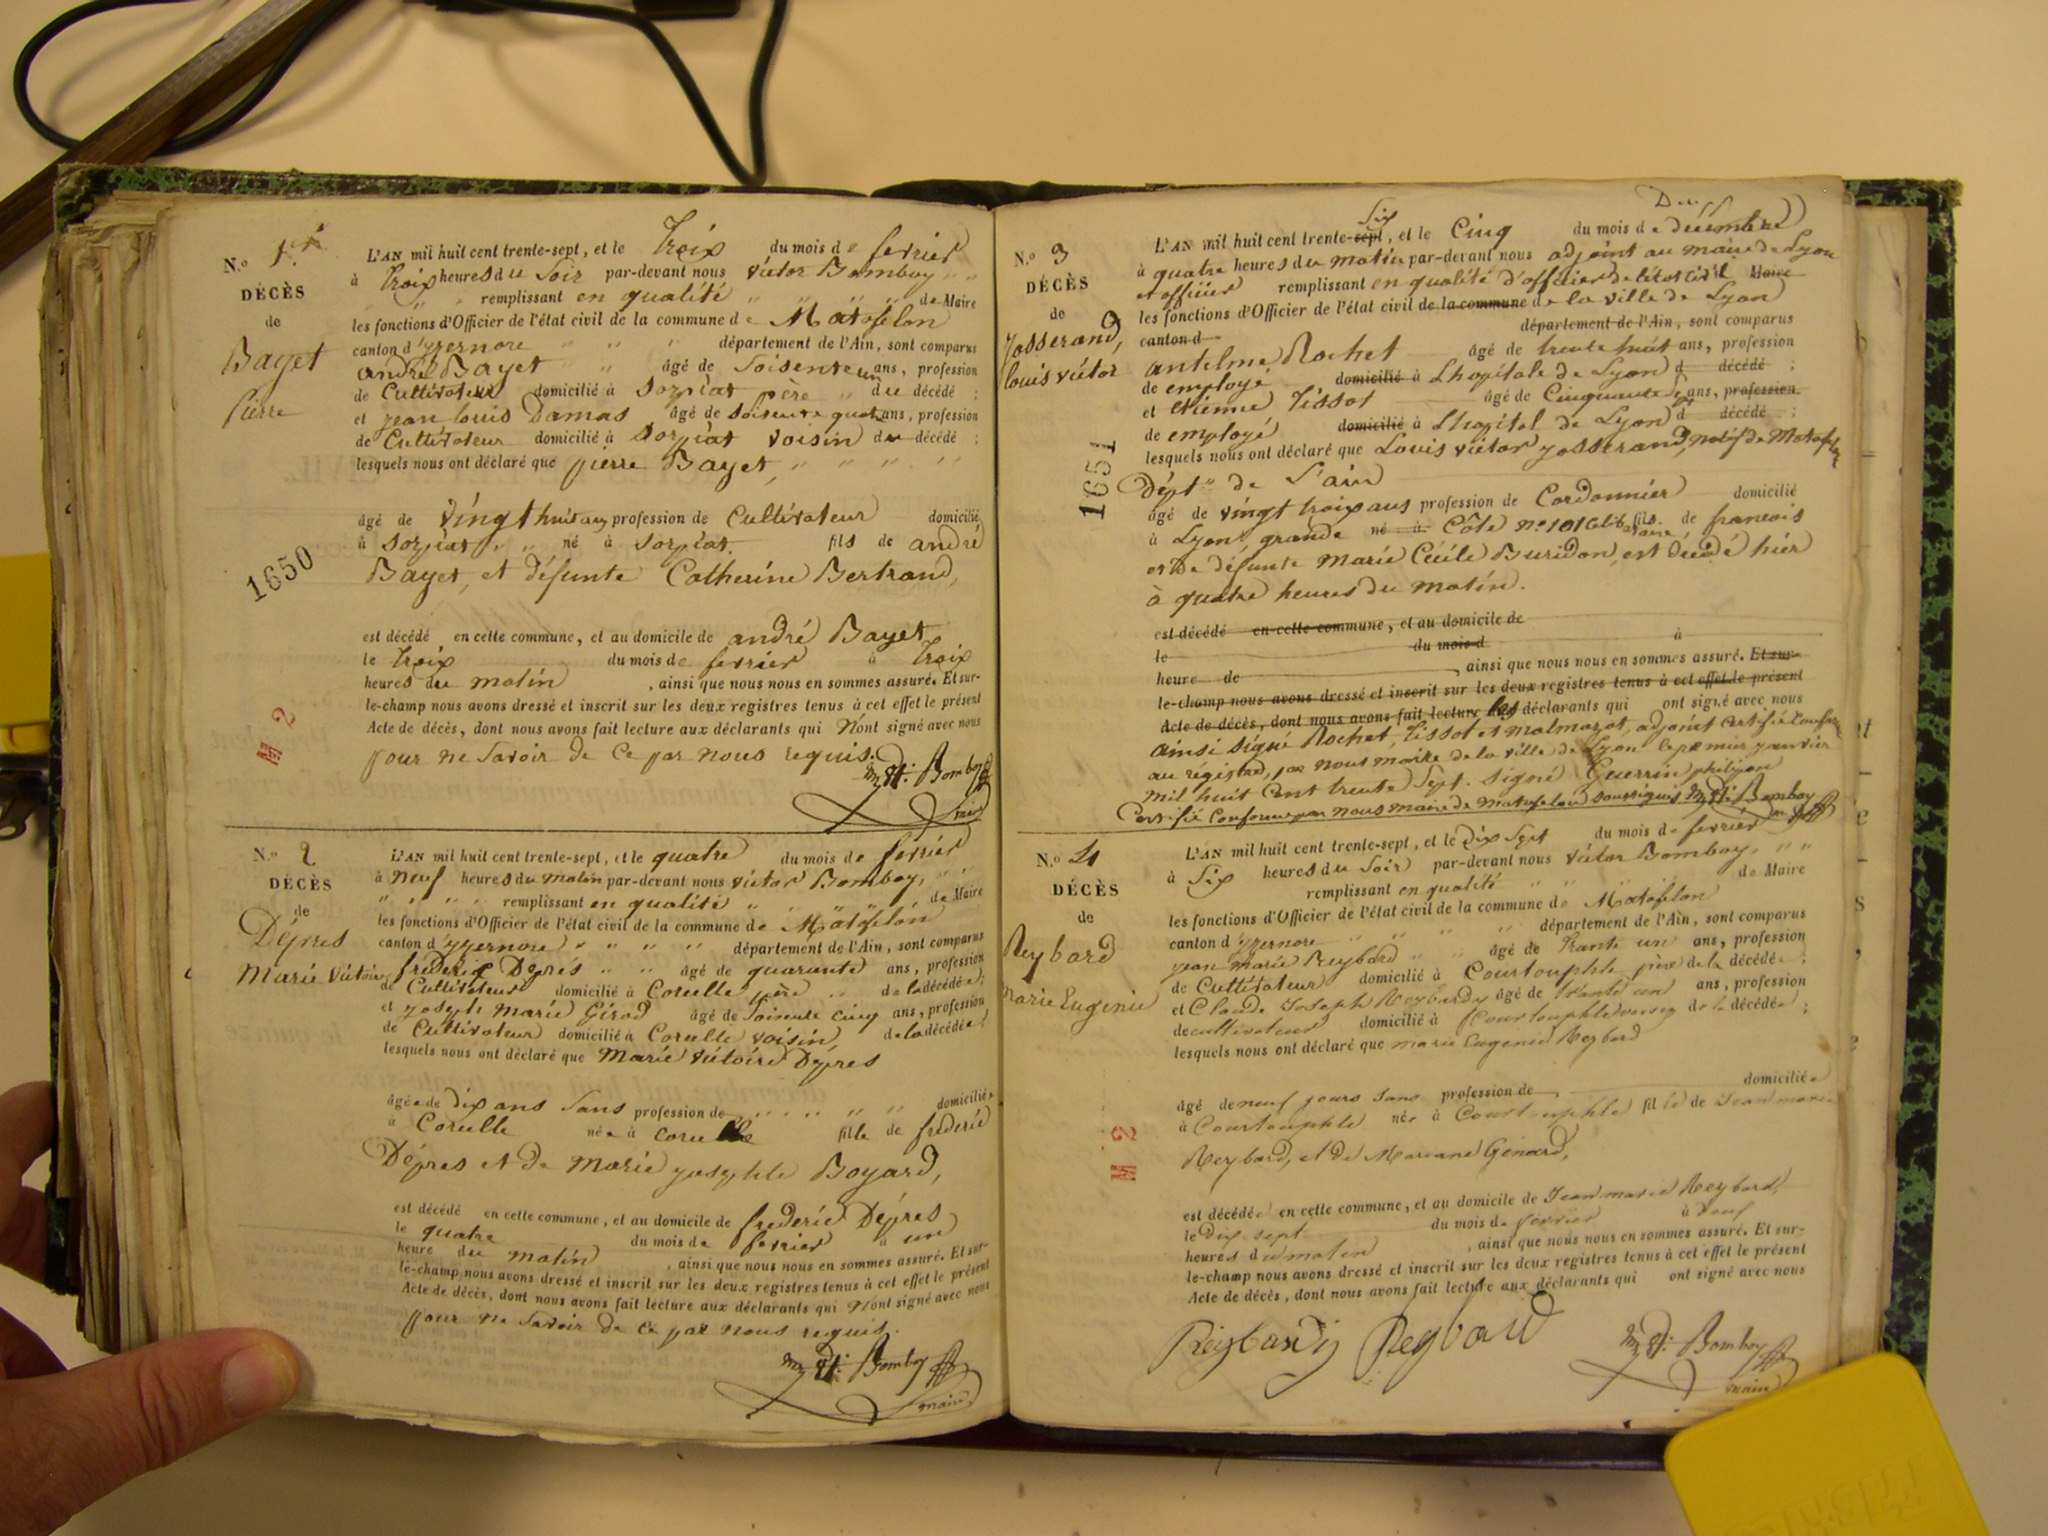 N.o 1er
DÉCÈS
de
Bayet
Pierre
1650
M 2
L'AN mil huit cent trente-sept, et le trois du mois de fevrier
à trois heures du soir par-devant nous victor Bomboy
remplissant en qualité de Maire
les fonctions d'Officier de l'état civil de la commune de Matafelon
canton d'yzernore département de l'Ain, sont comparus
andré Bayet âgé de soisente un ans, profession
de Cultivateur domicilié à sorpiat père du décédé ;
et jean louis Damas âgé de soisente quatre ans, profession
de Cultivateur domicilié à sorpiat voisin du décédé ;
lesquels nous ont déclaré que pierre Bayet,
âgé de vingt huit ans profession de Cultivateur domicilié
à sorpiat né à sorpiat. fils de andré
Bayet, et défunte Catherine Bertrand,
est décédé en cette commune, et au domicile de andré Bayet
le trois du mois de fevrier à trois
heures du matin , ainsi que nous nous en sommes assuré. Et sur-
le-champ nous avons dressé et inscrit sur les deux registres tenus à cet effet le présent
Acte de décès, dont nous avons fait lecture aux déclarants qui N'ont signé avec nous
pour ne savoir de ce par nous requis.
Bomboy
maire
N.o 2
DÉCÈS
de
Dépres
Marie Victoire
L'AN mil huit cent trente-sept, et le quatre du mois de fevrier
à neuf heures du matin par-devant nous victor Bomboy,
remplissant en qualité de Maire
les fonctions d'Officier de l'état civil de la commune de Matafelon
canton d'yzernore département de l'Ain, sont comparus
frederic Deprés âgé de quarante ans, profession
de Cultivateur domicilié à Corcelle père de la décédée ;
et joseph marie Girod âgé de soisente cinq ans, profession
de Cultivateur domicilié à Corcelle voisin de la décédée ;
lesquels nous ont déclaré que Marie victoire Dépres
âgée de dix ans sans profession de domiciliée
à Corcelle née à corcelle fille de frederic
Dépres et de Marie josephte Boyard,
est décédé en cette commune, et au domicile de frederic Dépres
le quatre du mois de fevrier à un
heure du matin , ainsi que nous nous en sommes assuré. Et sur-
le-champ nous avons dressé et inscrit sur les deux registres tenus à cet effet le présent
Acte de décès, dont nous avons fait lecture aux déclarants qui N'ont signé avec nous
pour ne savoir de ce par nous requis.
Bomboy
maire
N.o 3
DÉCÈS
de
Josserand,
louis victor
1651
L'AN mil huit cent trente-sept six, et le Cinq du mois de décembre
à quatre heures du matin par-devant nous adjoint au maire de Lyon
et officier remplissant en qualité d'officier de l'état civil Maire
les fonctions d'Officier de l'état civil de la commune de la ville de Lyon
canton d département de l'Ain, sont comparus
antelme Rochet âgé de trente huit ans, profession
de employé domicilié à Lhopitale de Lyon d décédé ;
et etienne Tissot âgé de Cinquante ans, profession
de employé domicilié à L'hopital de Lyon d décédé ;
lesquels nous ont déclaré que Louis victor josserand, natif de Matafelon
Dépt de L'ain
âgé de vingt trois ans profession de Cordonnier domicilié
à Lyon grande né à Côte no 101 fils de francois
et de défunte Marie Cécile Buridon, est décédé hier
à quatre heures du matin.
est décédé en cette commune, et au domicile de
le du mois d à
heure de , ainsi que nous nous en sommes assuré. Et sur-
le-champ nous avons dressé et inscrit sur les deux registres tenus à cet effet le présent
Acte de décès, dont nous avons fait lecture les déclarants qui ont signé avec nous
ainsi signé Rochet, Tissot et Malmazet, adjoint certifié conforme
au régistre, par nous maire de la ville de Lyon le premier janvier
mil huit Cent trente Sept. signé Guerrin philipon
Certifié Conforme par nous maire de Matafelon soussigné Bomboy
N.o 4
DÉCÈS
de
Reybard
Marie Eugenie
M 2
L'AN mil huit cent trente-sept, et le Dix Sept du mois de fevrier
à Six heures du Soir par-devant nous victor Bomboy,
remplissant en qualité de Maire
les fonctions d'Officier de l'état civil de la commune de Matafelon
canton d'yzernore département de l'Ain, sont comparus
jean marie Reybard âgé de trante un ans, profession
de Cultivateur domicilié à Courtouphle père de la décédée ;
et Claude Joseph Reybardy âgé de trante un ans, profession
de cultivateur domicilié à Courtouphle de la décédée ;
lesquels nous ont déclaré que marie Eugenie Reybard
âgé de neuf jours sans profession de domiciliée
à Courtouphle née à Courtouphle fille de Jean marie
Reybard, et de Mariane Génard,
est décédée en cette commune, et au domicile de Jean marie Reybard,
le dix sept du mois de fevrier à neuf
heures du matin , ainsi que nous nous en sommes assuré. Et sur-
le-champ nous avons dressé et inscrit sur les deux registres tenus à cet effet le présent
Acte de décès, dont nous avons fait lecture aux déclarants qui ont signé avec nous
Reybardy Reybard
Bomboy
maire